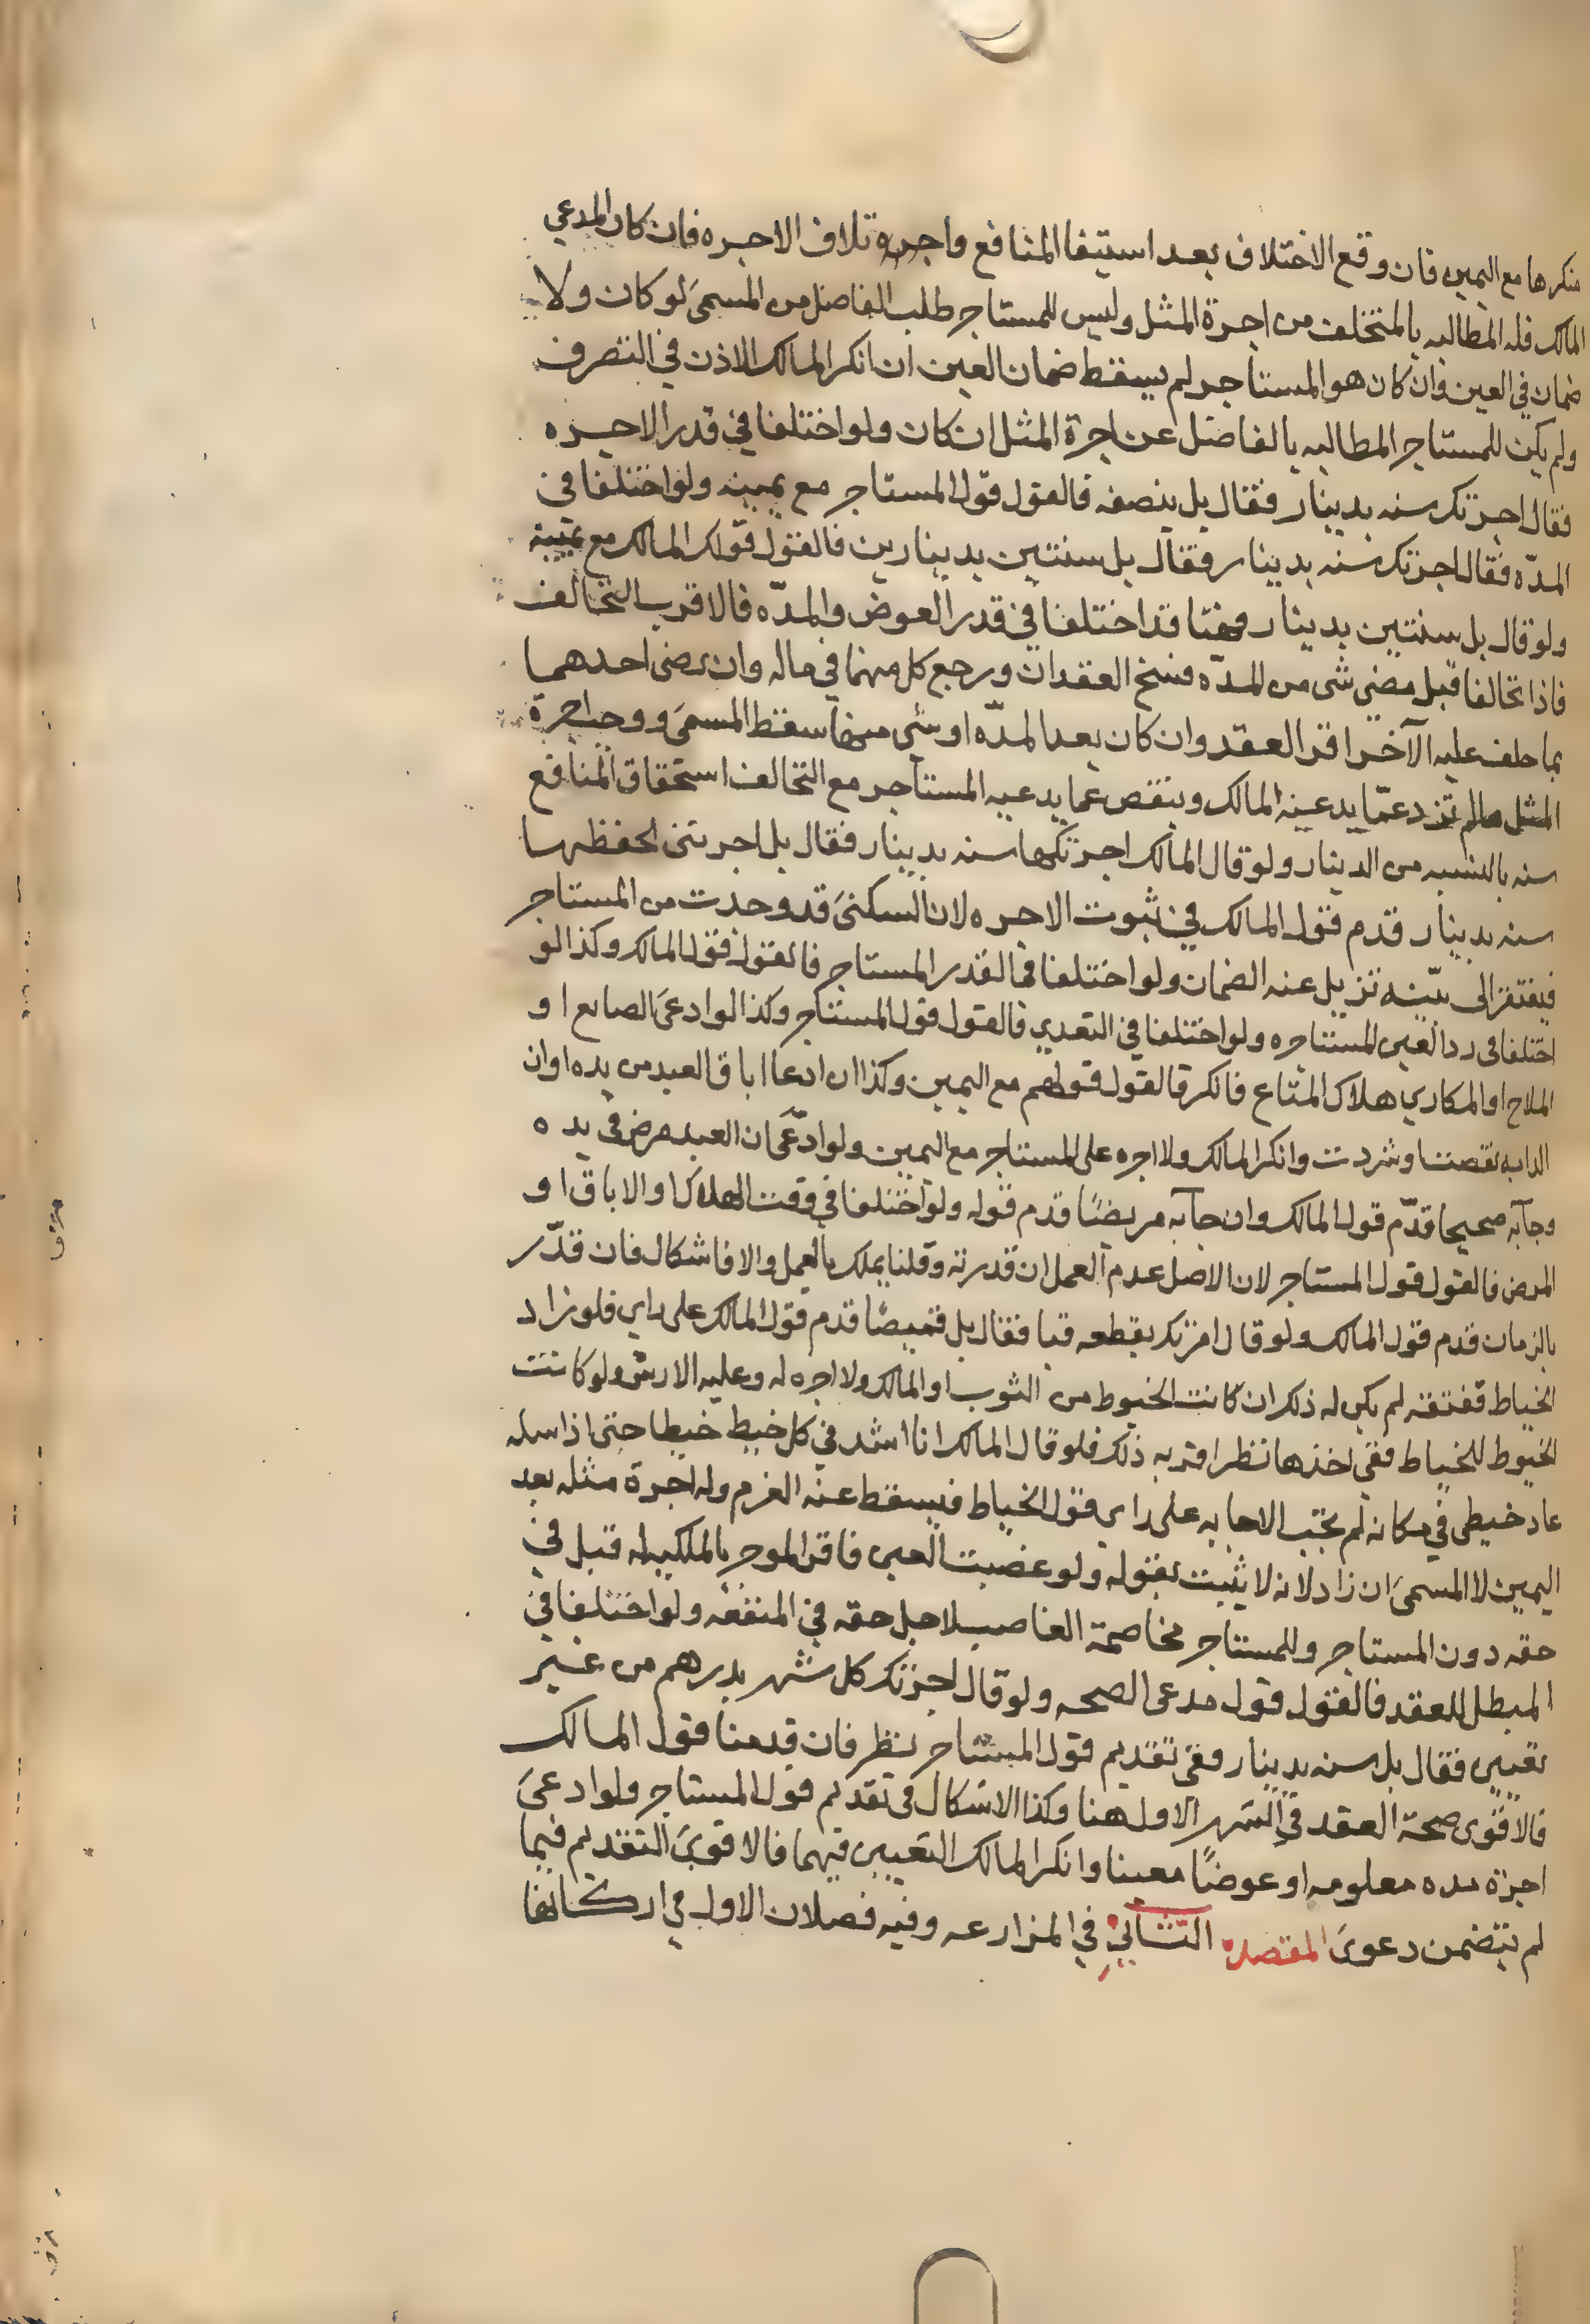 منكرها مع اليمين فان وقع الاختلاف بعد استيفا المنافع واجره تلاف الاجره فان كان المدعي
المالك فله المطالبه بالمتخلف من اجرة المثل وليس للمستاجر طلب الفاضل من المسمى لو كان ولا
ضمان في العين وان كان هو المستاجر لم يسقط ضمان العين ان انكر المالك الاذن في التصرف
ولم يكن للمستاجر المطالبه بالفاضل عن اجرة المثل ان كان ولو اختلفا في قدر الاجره
فقال اجرتك سنه بدينار فقال بل بنصفه فالقول قول المستاجر مع يمينه ولو اختلفا في
المدّه فقال اجرتك سنه بدينار فقال بل سنتين بدينارين فالقول قول المالك مع يمينه
ولو قال بل سنتين بدينار فهنا قد اختلفا في قدر العوض والمدّه فالاقرب التحالف
فاذا تحالفا قبل مضي شي من المدّه فسخ العقدان ورجع كل منهما في ماله وان رضى احدهما
بما حلف عليه الآخر اقر العقد وان كان بعد المدّه او شي منها سقط المسمى ووجب اجرة
المثل مالم تزد عمّا يدعيه المالك وينقص عما يدعيه المستاجر مع التحالف استحقاق المنافع
سنه بالنسبه من الدينار ولو قال المالك اجرتكها سنه بدينار فقال بل اجرتنى لحفظها
سنه بدينار قدم قول المالك في ثبوت الاجره لان السكنى قد وجدت من المستاجر
فيفتقر الى بيّنه تزيل عنه الضمان ولو اختلفا فى القدر المستاجر فالقول قول المالك وكذا لو
اختلفا فى رد العين المستاجره ولو اختلفا في التعدي فالقول قول المستاجر وكذا لو ادعى الصانع او
الملاح او المكاري هلاك المتاع فانكر فالقول قولهم مع اليمين وكذا ان ادعا اباق العبد من يده او ان
الدابه نقصت او شردت وانكر المالك ولا اجره على المستاجر مع اليمين ولو ادّعى ان العبد مرض فى يده
وجآبه صحيحا قدّم قول المالك وان جآبه مريضًا قدم قوله ولو اختلفا في وقت الهلاك او الاباق او
المرض فالقول قول المستاجر لان الاصل عدم العمل ان قدرته وقلنا يملك بالعمل والا فاشكال فان قدّر
بالزمان قدم قول المالك ولو قال امرتك بقطعه قبا فقال بل قميصًا قدم قول المالك على راي فلو زاد
الخياط فتقه لم يكن له ذلك ان كانت الخيوط من الثوب او المالك ولا اجره له وعليه الارش ولو كانت
الخيوط للخياط ففى اخذها نظر اقربه ذلك فلو قال المالك انا اشد في كل خيط خيطا حتى اذا سله
عاد خيطى في مكانه لم يجب الاجابه على راي قول الخياط فيسقط عنه الغرم وله اجرة مثله بعد
اليمين لا المسمى ان زاد لانه لا يثبت بقوله ولو غصبت العين فاقر الموجر بالملكيه له قبل في
حقه دون المستاجر وللمستاجر مخاصمة الغاصب لاجل حقه في المنفعه ولو اختلفا في
المبطل للعقد فالقول قول مدعى الصحه ولو قال اجرتك كل شهر بدرهم من غير
تعيين فقال بل سنه بدينار ففى تقديم قول المستاجر نظر فان قدمنا قول المالك
فالاقوى صحة العقد في الشهر الاول هنا وكذا الاشكال فى تقديم قول المستاجر ولو ادعى
اجرة مده معلومه او عوضًا معينا وانكر المالك التعيين فيهما فالاقوى التقديم فيما
لم يتضمن دعوى المقصد الثاني في المزارعه وفيه فصلان الاول في اركانها